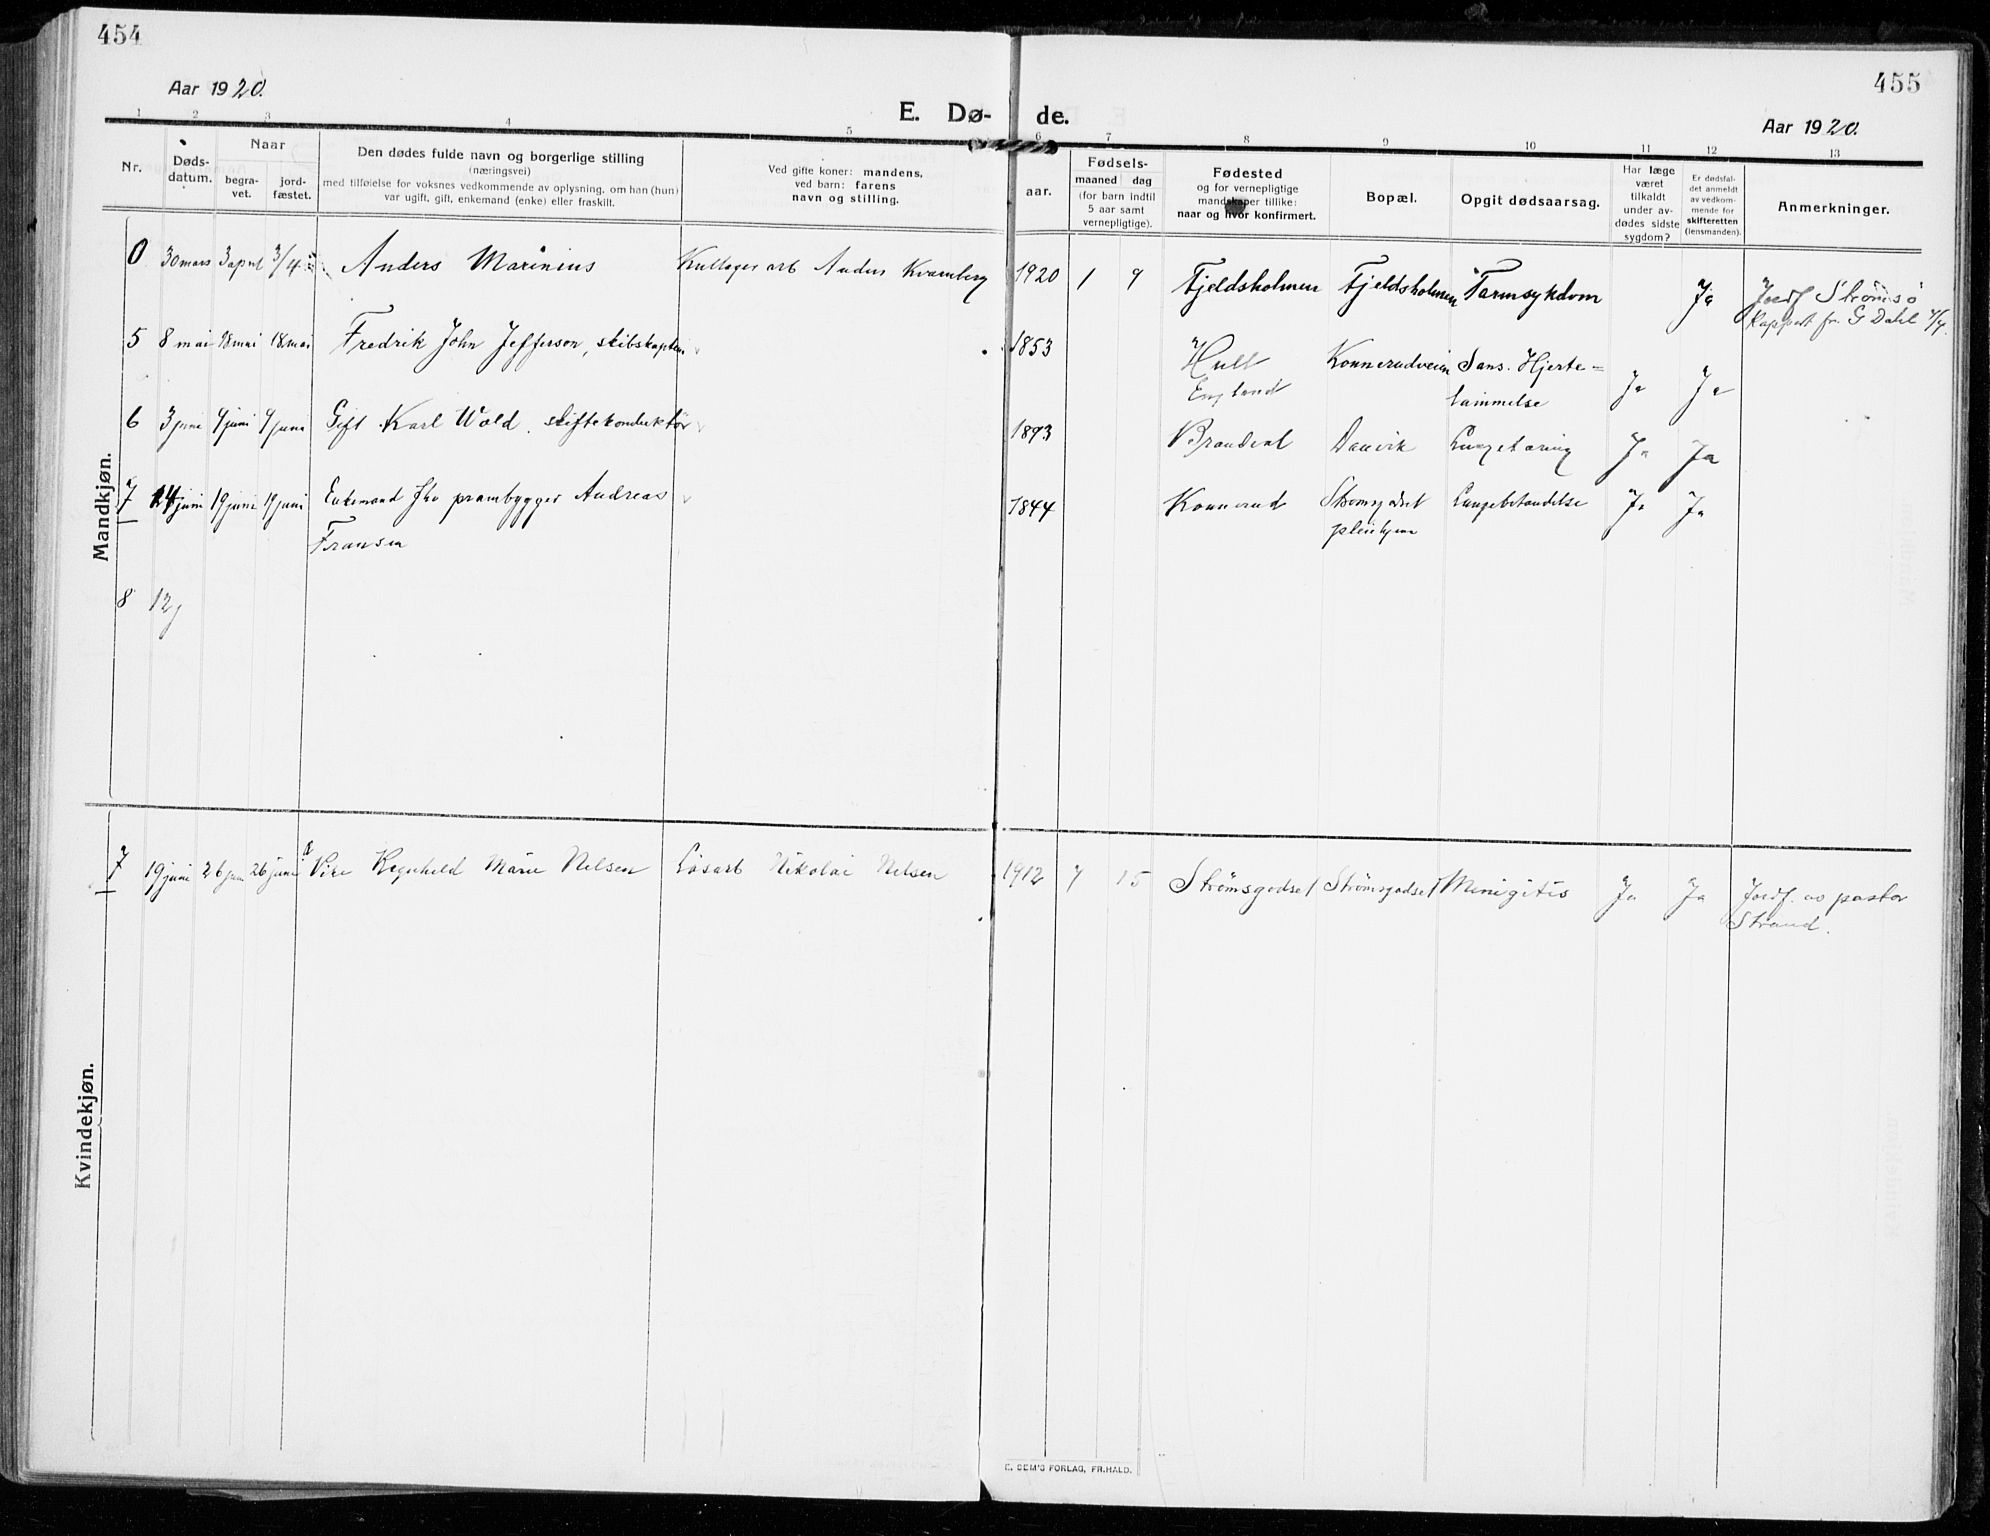 454
455
Aar 1920.
Aar 1920.
E. Dø-
de.
1 2 3 4 5 6 7 8 9 10 11 12 13
Nr.
Døds-
datum.
Naar
begra-
vet.
jord-
fæstet.
Den dødes fulde navn og borgerlige stilling
(næringsvei)
med tilføielse for voksnes vedkommende av oplysning, om han (hun)
var ugift, gift, enkemand (enke) eller fraskilt.
Ved gifte koner: mandens,
ved barn: farens
navn og stilling.
aar.
Fødsels-
maaned dag
(for barn indtil
5 aar samt
vernepligtige).
Fødested
og for vernepligtige
mandskaper tillike:
naar og hvor konfirmert.
Bopæl.
Opgit dødsaarsag.
Har læge
været
tilkaldt
under av-
dødes sidste
sygdom?
Er dødsfal-
det anmeldt
av vedkom-
mende for
skifteretten
(lensmanden).
Anmerkninger.
Mandkjøn.
0 30 mars 3 april 3/4 Anders Marinius Kullager arb Anders Kvamberg 1920 1 9 Fjeldsholmen Fjeldsholmen Tarmsykdom Ja Jordf Strømsø
Rapport fr. G Dahl
5 8 mai 18 mai 18 mai Fredrik John Jefferson, skibskaptein 1853 Hull Konnerudveien Sans. Hjerte=
England lammelse Ja Ja
6 3 juni 9 juni 9 juni Gift Karl Wold. skiftekonduktør 1893 Brandval Danvik Lungetæring Ja Ja
7 14 juni 19 juni 19 juni Enkemand fhv prambygger Andreas 1844 Konnerud Strømsgodset Lungebetændelse Ja Ja
Fransen pleiehjem
8 12 j
Kvindekjøn.
7 19 juni 26 juni 26 juni Pike Ragnhild Marie Nilsen Løsarb Nikolai Nilsen 1912 7 15 Strømsgodset Strømsgodset Menigitis Ja Ja Jordf. av pastor
Strand.
E. SEM'S FORLAG, FR.HALD.